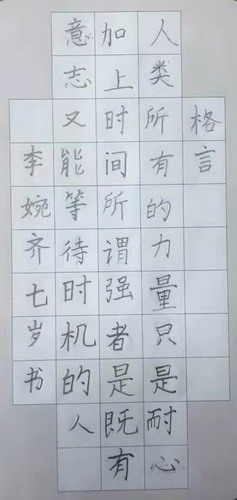 格言
人类所有的力量只是耐心
加上时间所谓强者是既有
意志又能等待时机的人
李婉齐七岁书